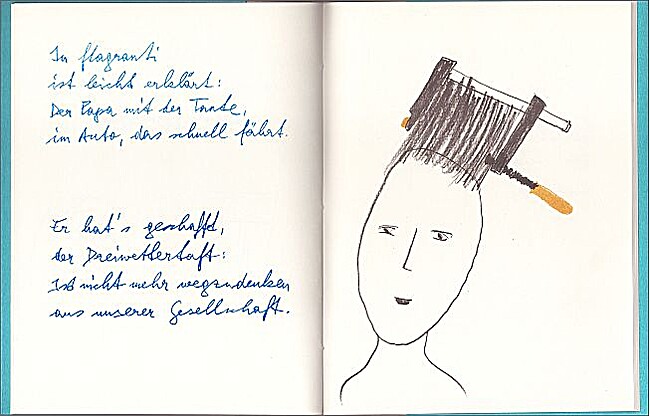 In flagranti
ist leicht erklärt:
Der Papa mit der Tante,
im Auto, das schnell fährt.
Er hat's geschafft,
der Dreiwettertaft:
Ist nicht mehr wegzudenken
aus unserer Gesellschaft.